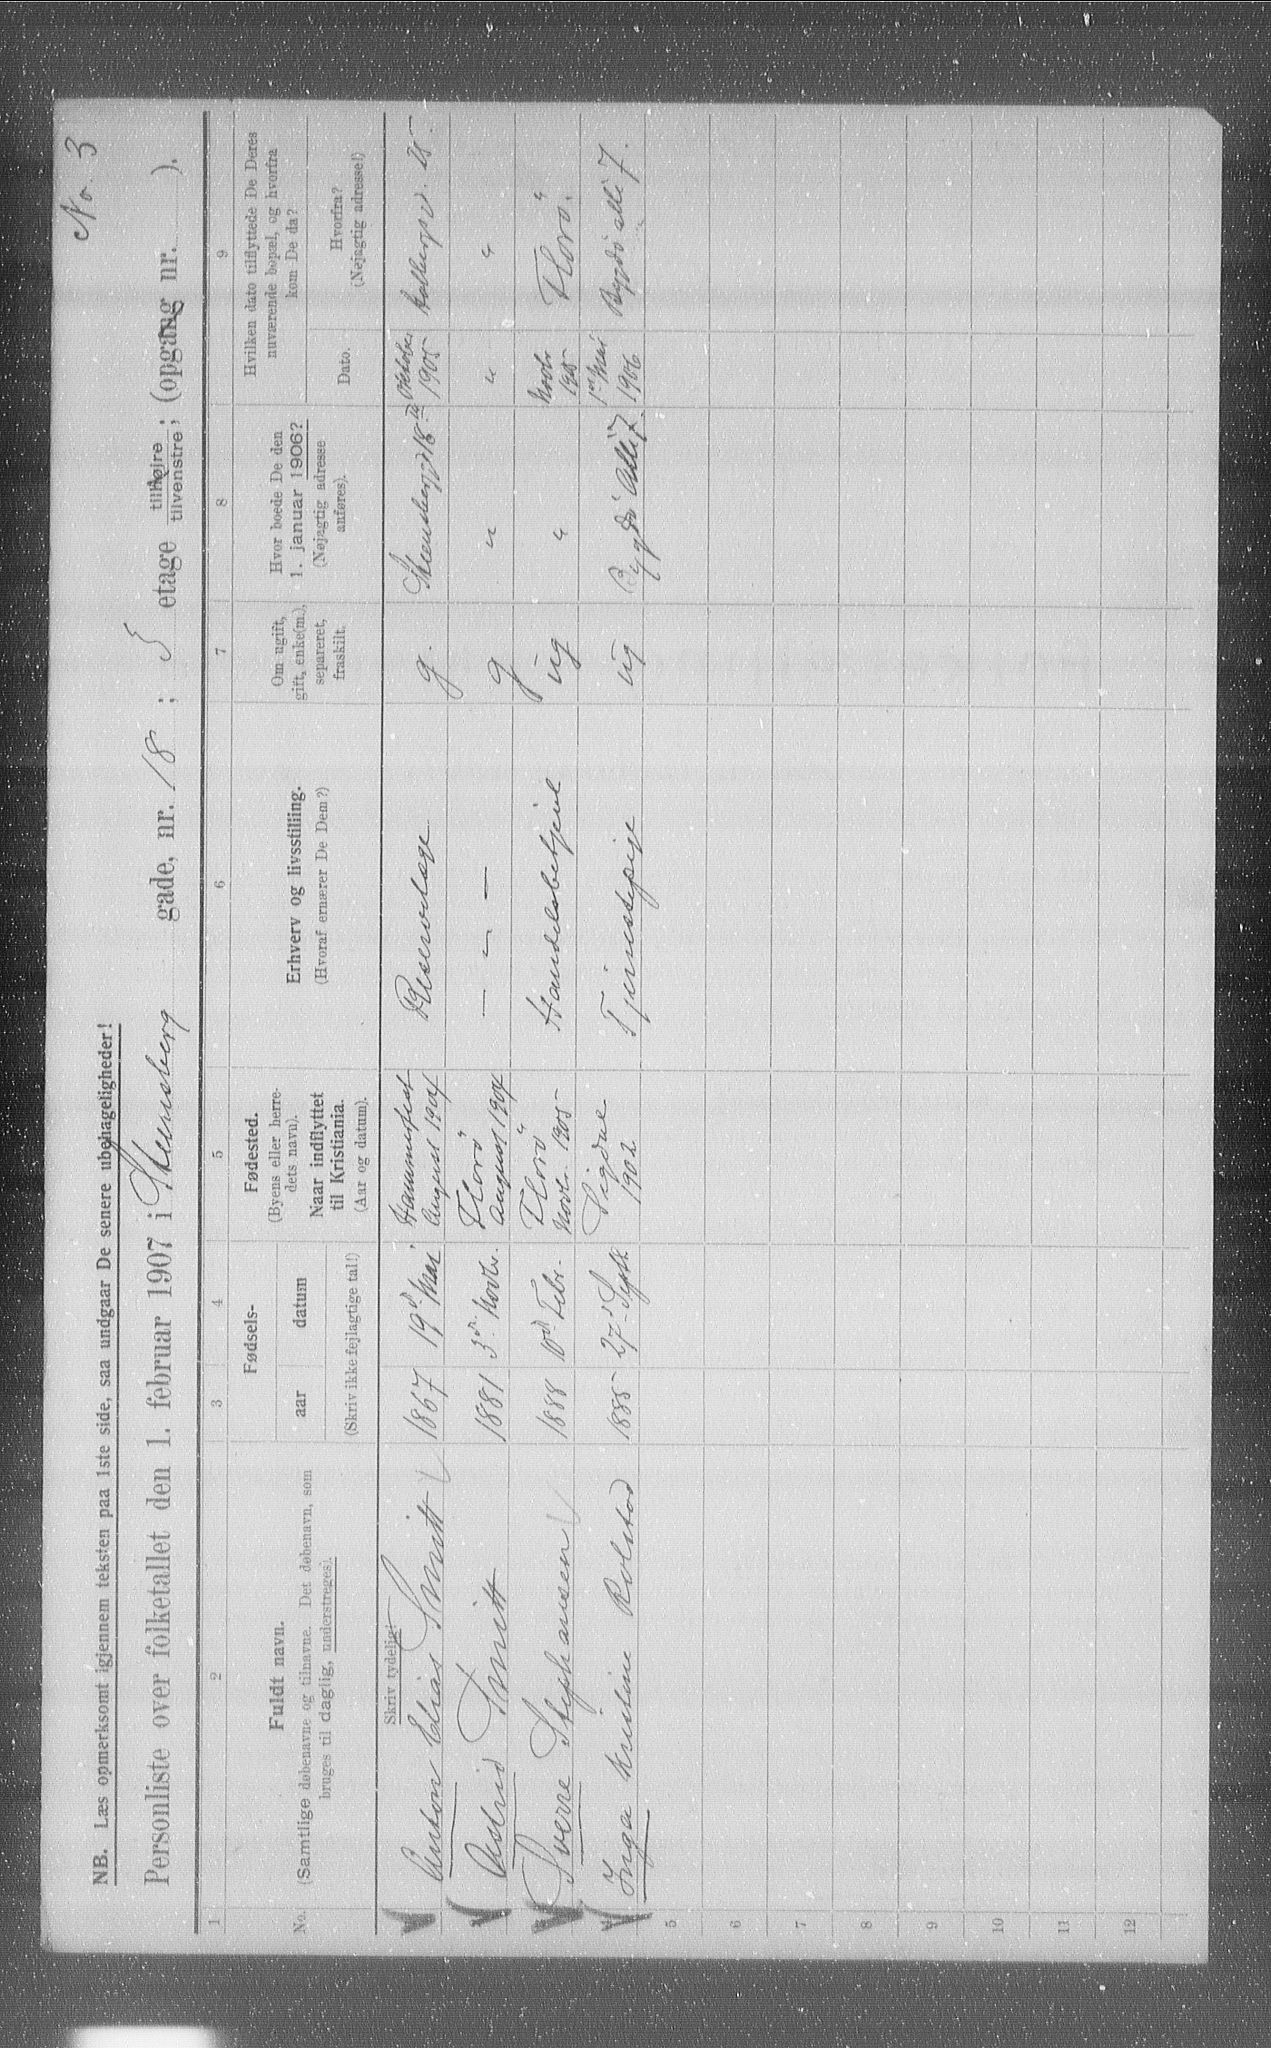 No. 3
NB. Læs opmerksomt igjennem teksten paa 1ste side, saa undgaar De senere ubehageligheder!
Personliste over folketallet den 1. februar 1907 i Steensberg gade, nr. 18 ; 5 etage tilhøire / tilvenstre; (opgang nr. ).
1 2 3 4 5 6 7 8 9
No.
Fuldt navn.
(Samtlige døbenavne og tilnavne. Det døbenavn, som
bruges til daglig, understreges).
Fødsels-
aar datum
(Skriv ikke fejlagtige tal!)
Fødested.
(Byens eller herre-
dets navn).
Naar indflyttet
til Kristiania.
(Aar og datum).
Erhverv og livsstilling.
(Hvoraf ernærer De Dem?)
Om ugift,
gift, enke(m.),
separeret,
fraskilt.
Hvor boede De den
1. januar 1906?
(Nøjagtig adresse
anføres).
Hvilken dato tilflyttede De Deres
nuværende bopæl, og hvorfra
kom De da?
Dato.
Hvorfra?
(Nøjagtig adresse!)
Skriv tydeligt
Anton Elias Smitt 1867 19d Mai Hammerfest August 1904 Reservelæge g. Steensbergg 18 Oktober 1905 25
Astrid Smitt 1881 3d Novbr. Florö August 1904 — " — g " " "
Sverre Stephansen 1888 10d Febr. Florö Novbr. 1905 Handelsbetjent ug " Novbr 1905 Florö "
Inga Kristine Rolstad 1885 27d Septb Sigdal 1902 Tjenestepige ug Bygdö Allé 7 1ste Mai 1906 Bygdö allé 7.
5
6
7
8
9
10
11
12